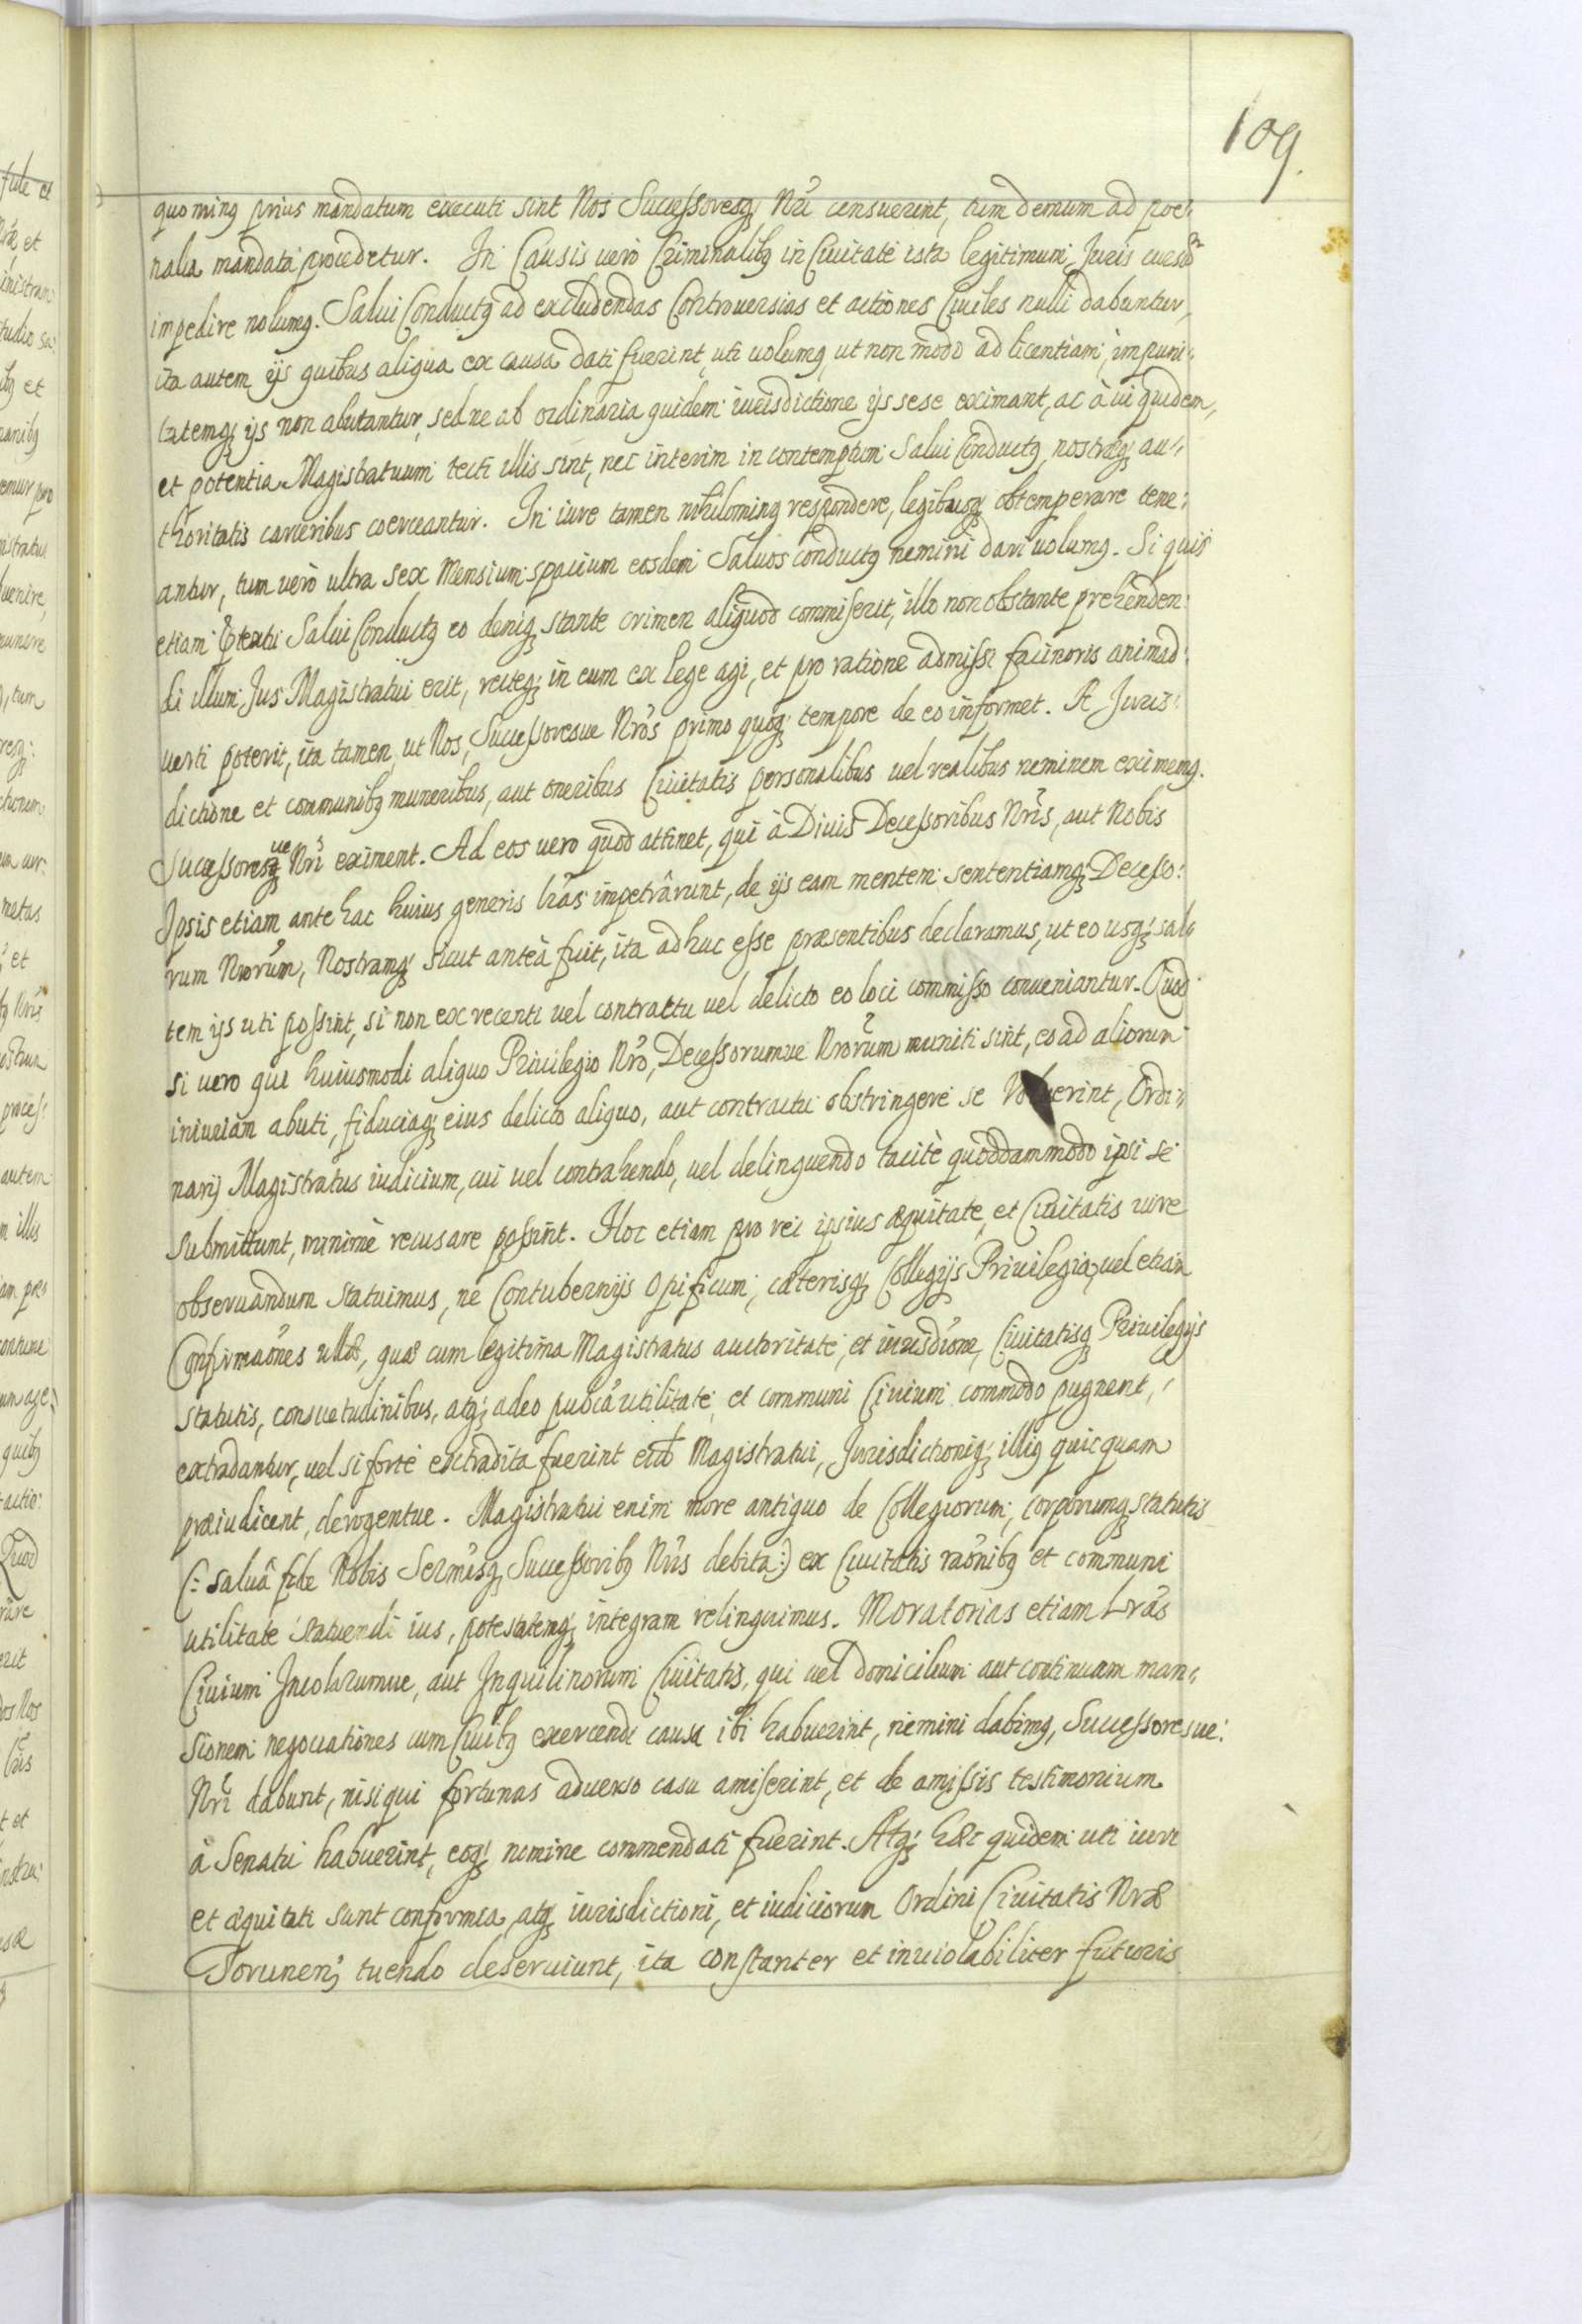 109.
quo minq prius mandatum executi sint Nos Successoresq; Nri censuerint, tum demum ad poe-
nalia mandata procedetur. In Causis vero Criminalibq in Ciuitate ista legitimum Juris cursu
impedire nolumq. Salui Conductq ad excludendas Controuersias et actiones Ciuiles nulli dabuntur,
ita autem ijs quibus aliqua ex causa dati fuerint, uti uolumq, ut non modo ad licentiam, impuni-
tatemq; ijs non abutantur, sed ne ab ordinaria quidem iurisdictione ijs sese eximant, ac à ui quidem,
et potentia Magistratuum tecti illis sint, nec interim in contemptum Salui Conductq, nostræq; au-
thoritatis carceribus coerceantur. In iure tamen nihilominq respondere, legibusq; obtemperare tene-
antur, tum verò ultra sex Mensium spacium eosdem Saluos conductq nemini dari uolumq. Si quis
etiam Salui Conductq eo deniq; stante crimen aliquod commiserit, illo non obstante prehenden-
di illum Jus Magistratui erit, recteq; in eum ex lege agi, et pro ratione admissi facinoris animad-
uerti poterit, ita tamen, ut Nos, Successoresue Nros primo quoq; tempore de eo informet. A Juris-
dictione et communibq muneribus, aut oneribus Ciuitatis personalibus uel realibus neminem eximemq.
Successoresue Nri eximent. Ad eos uero quod attinet, qui à Diuis Decessoribus Nris, aut Nobis
Ipsis etiam ante hac huius generis lras impetrârunt, de ijs eam mentem sententiamq; Decesso-
rum Nrorum, Nostramq; sicut anteà fuit, ita adhuc esse præsentibus declaramus, ut eo usq; sal-
tem ijs uti possint, si non ex recenti uel contractu uel delicto eo loci commisso conueniantur. Quod
si uero qui huiusmodi aliquo Priuilegio Nro, Decessorumue Nrorum muniti sint, eo ad aliorum
iniuriam abuti, fiduciaq; eius delicto aliquo, aut contractu obstringere se Voluerint, Ordi-
narij Magistratus iudicium, cui uel contrahendo, uel delinquendo tacitè quoddammodo ipsi se
submittunt, minimè recusare possint. Hoc etiam pro rei ipsius æquitate, et Ciuitatis iure
obseruandum statuimus, ne Contubernijs Opificum, cæterisq; Collegijs Priuilegia, uel etiam
Confirmaones ullæ, quæ cum legitima Magistratus auctoritate, et iurisdione, Ciuitatisq; Priuilegijs
statutis, consuetudinibus, atq; adeo publica utilitate, et communi Ciuium commodo pugnent,
extradantur, uel si forte extradita fuerint Magistratui, Jurisdictioniq; illiq quicquam
præiudicent, derogentue. Magistratui enim more antiquo de Collegiorum, Corporumq; statutis
(: saluâ fide Nobis Sermisq; Successoribq Nris debita :) ex Ciuitatis raonibq et communi
utilitate statuendi ius, potestatemq; integram relinquimus. Moratorias etiam Lras
Ciuium Incolarumue, aut Inquilinorum Ciuitatis, qui uel Domicilium aut continuam man-
sionem negociationes cum Ciuibq exercendi causa ibi habuerint, nemini dabimq, Successoresue
Nri dabunt, nisi qui fortunas aduerso casu amiserint, et de amissis testimonium
à Senatu habuerint, eoq; nomine commendati fuerint. Atq; hæc quidem uti iuri
et æquitati sunt conformia, atq; iurisdictioni, et iudiciorum Ordini Ciuitatis Nræ
Torunen; tuendo deseruiunt, ita constanter et inuiolabiliter futuris